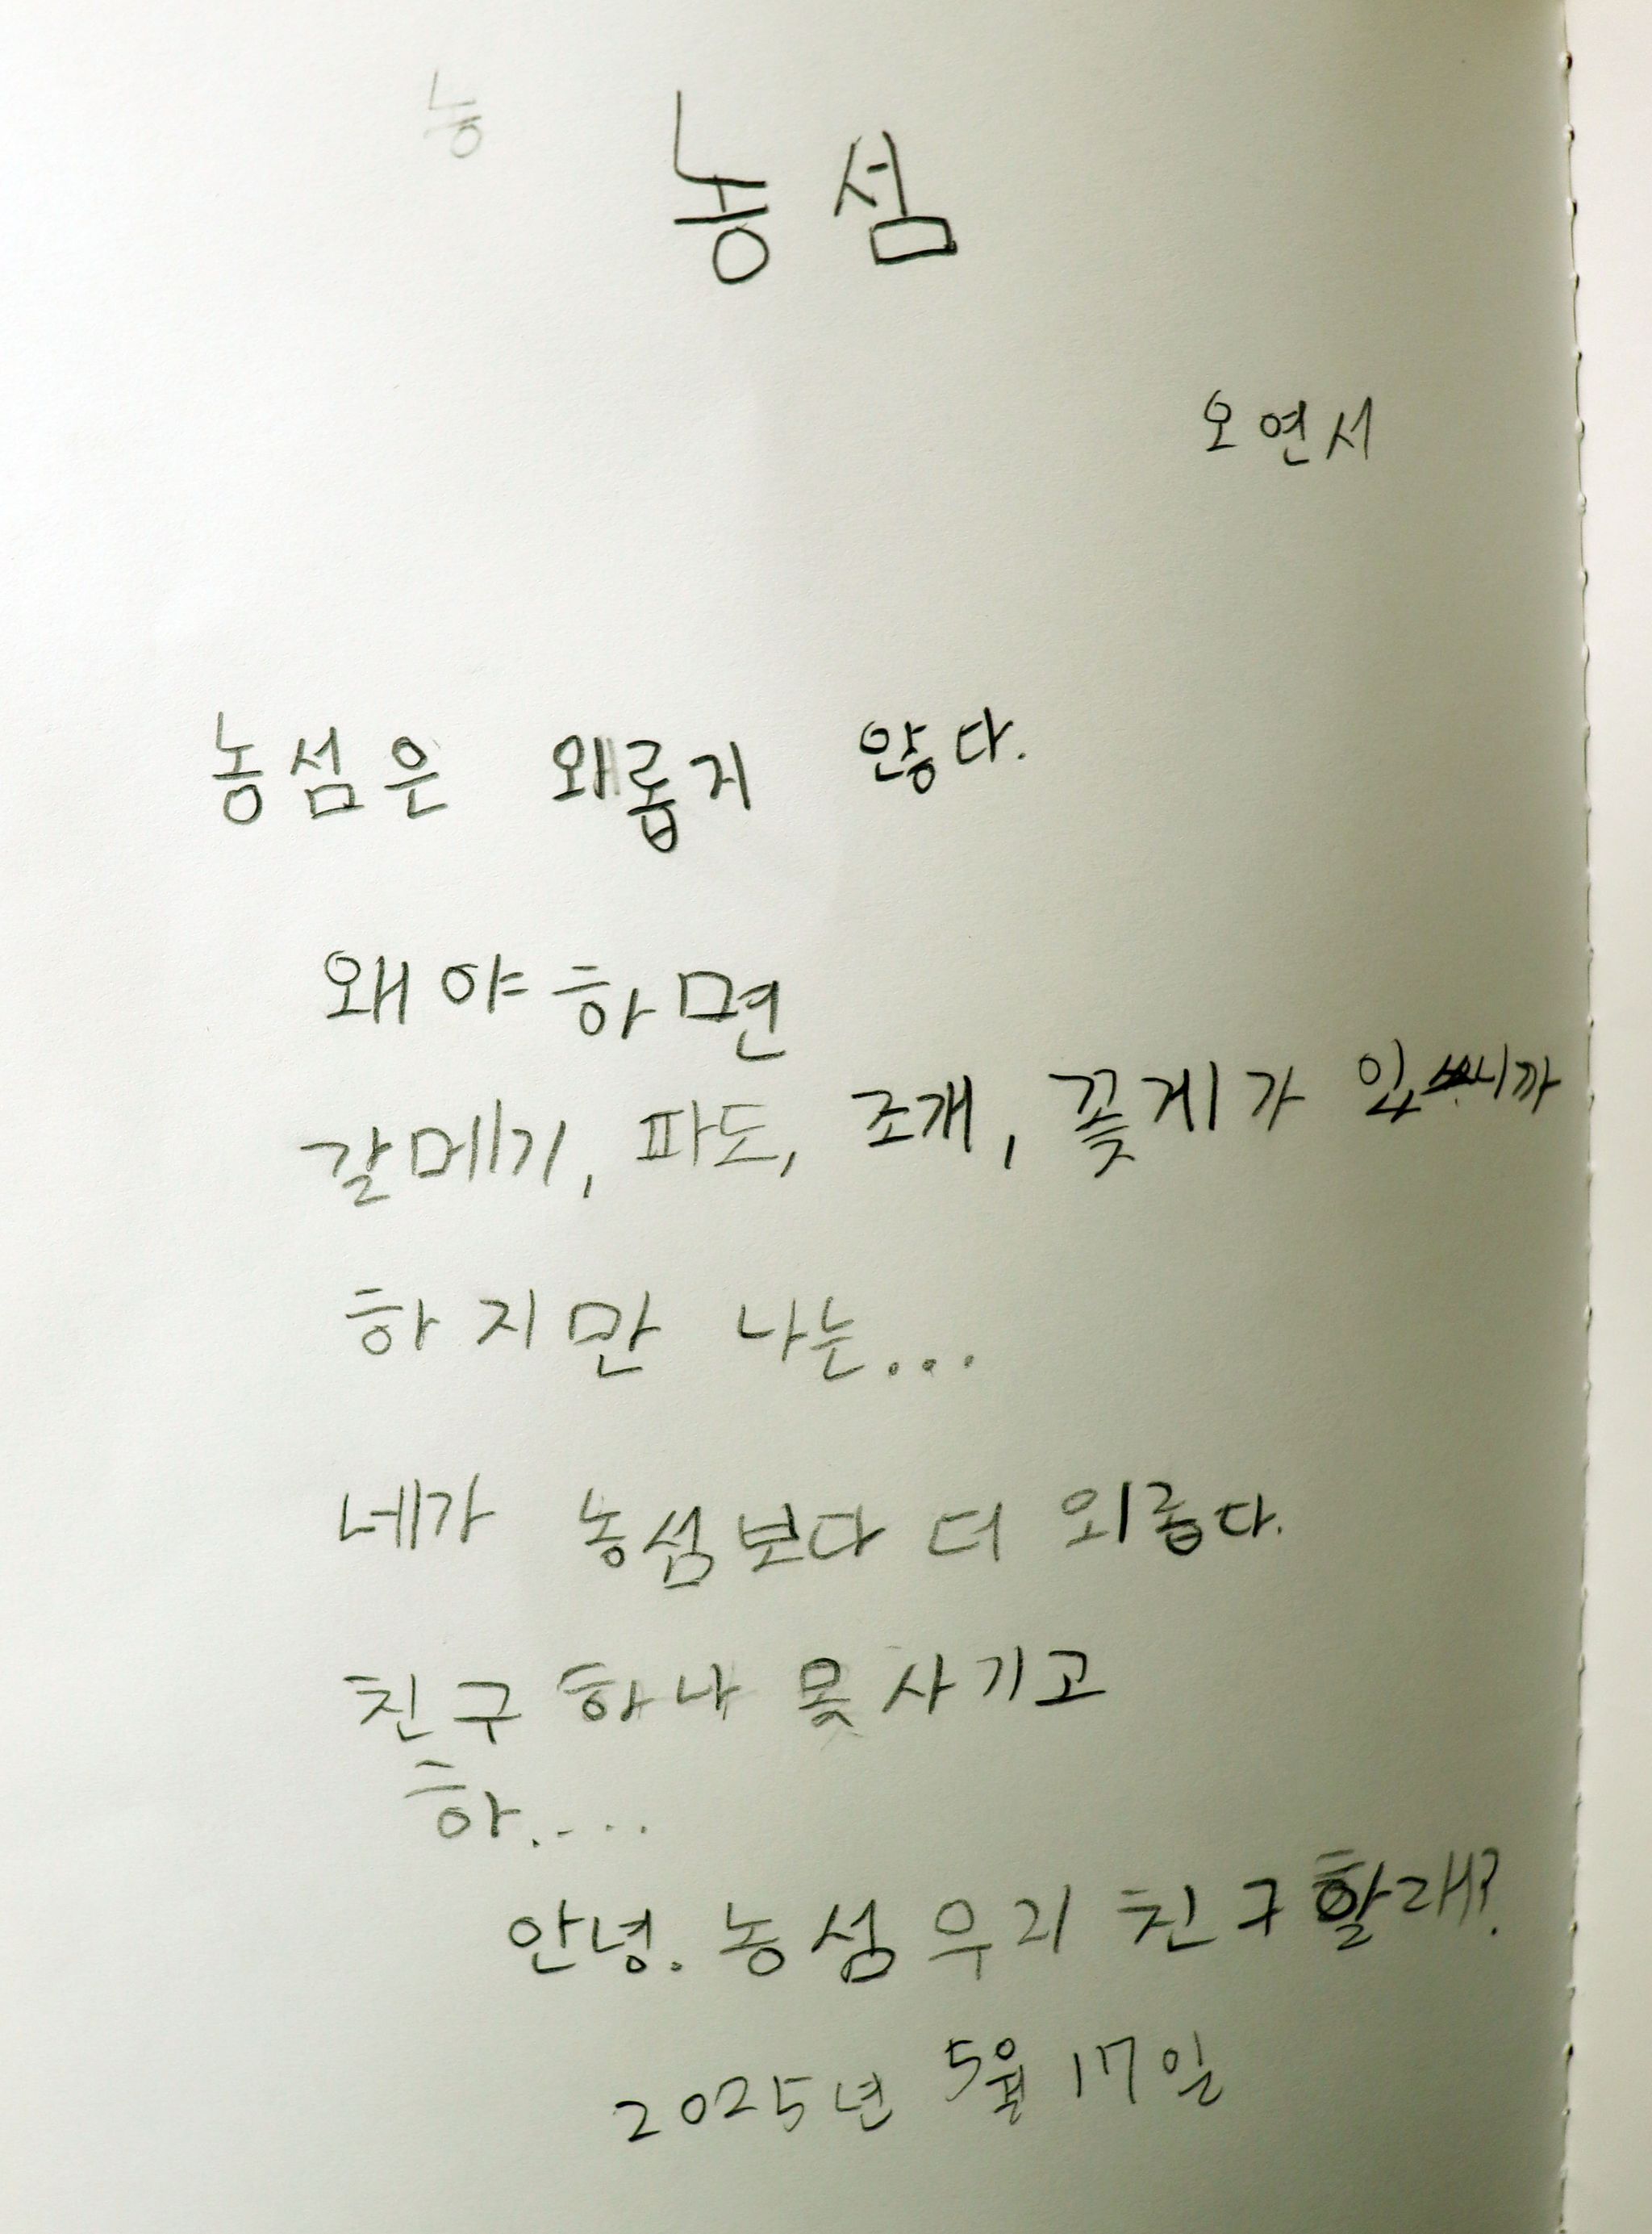 농
농섬
오연서
농섬은 왜롭지 않다.
왜야하면
갈메기, 파도, 조개, 꽃게가
하지만 나는...
네가 농섬보다 더 외롭다.
친구 하나 못사기고
하.....
안녕. 농섬 우리 친구할래?
2025년 5월 17일